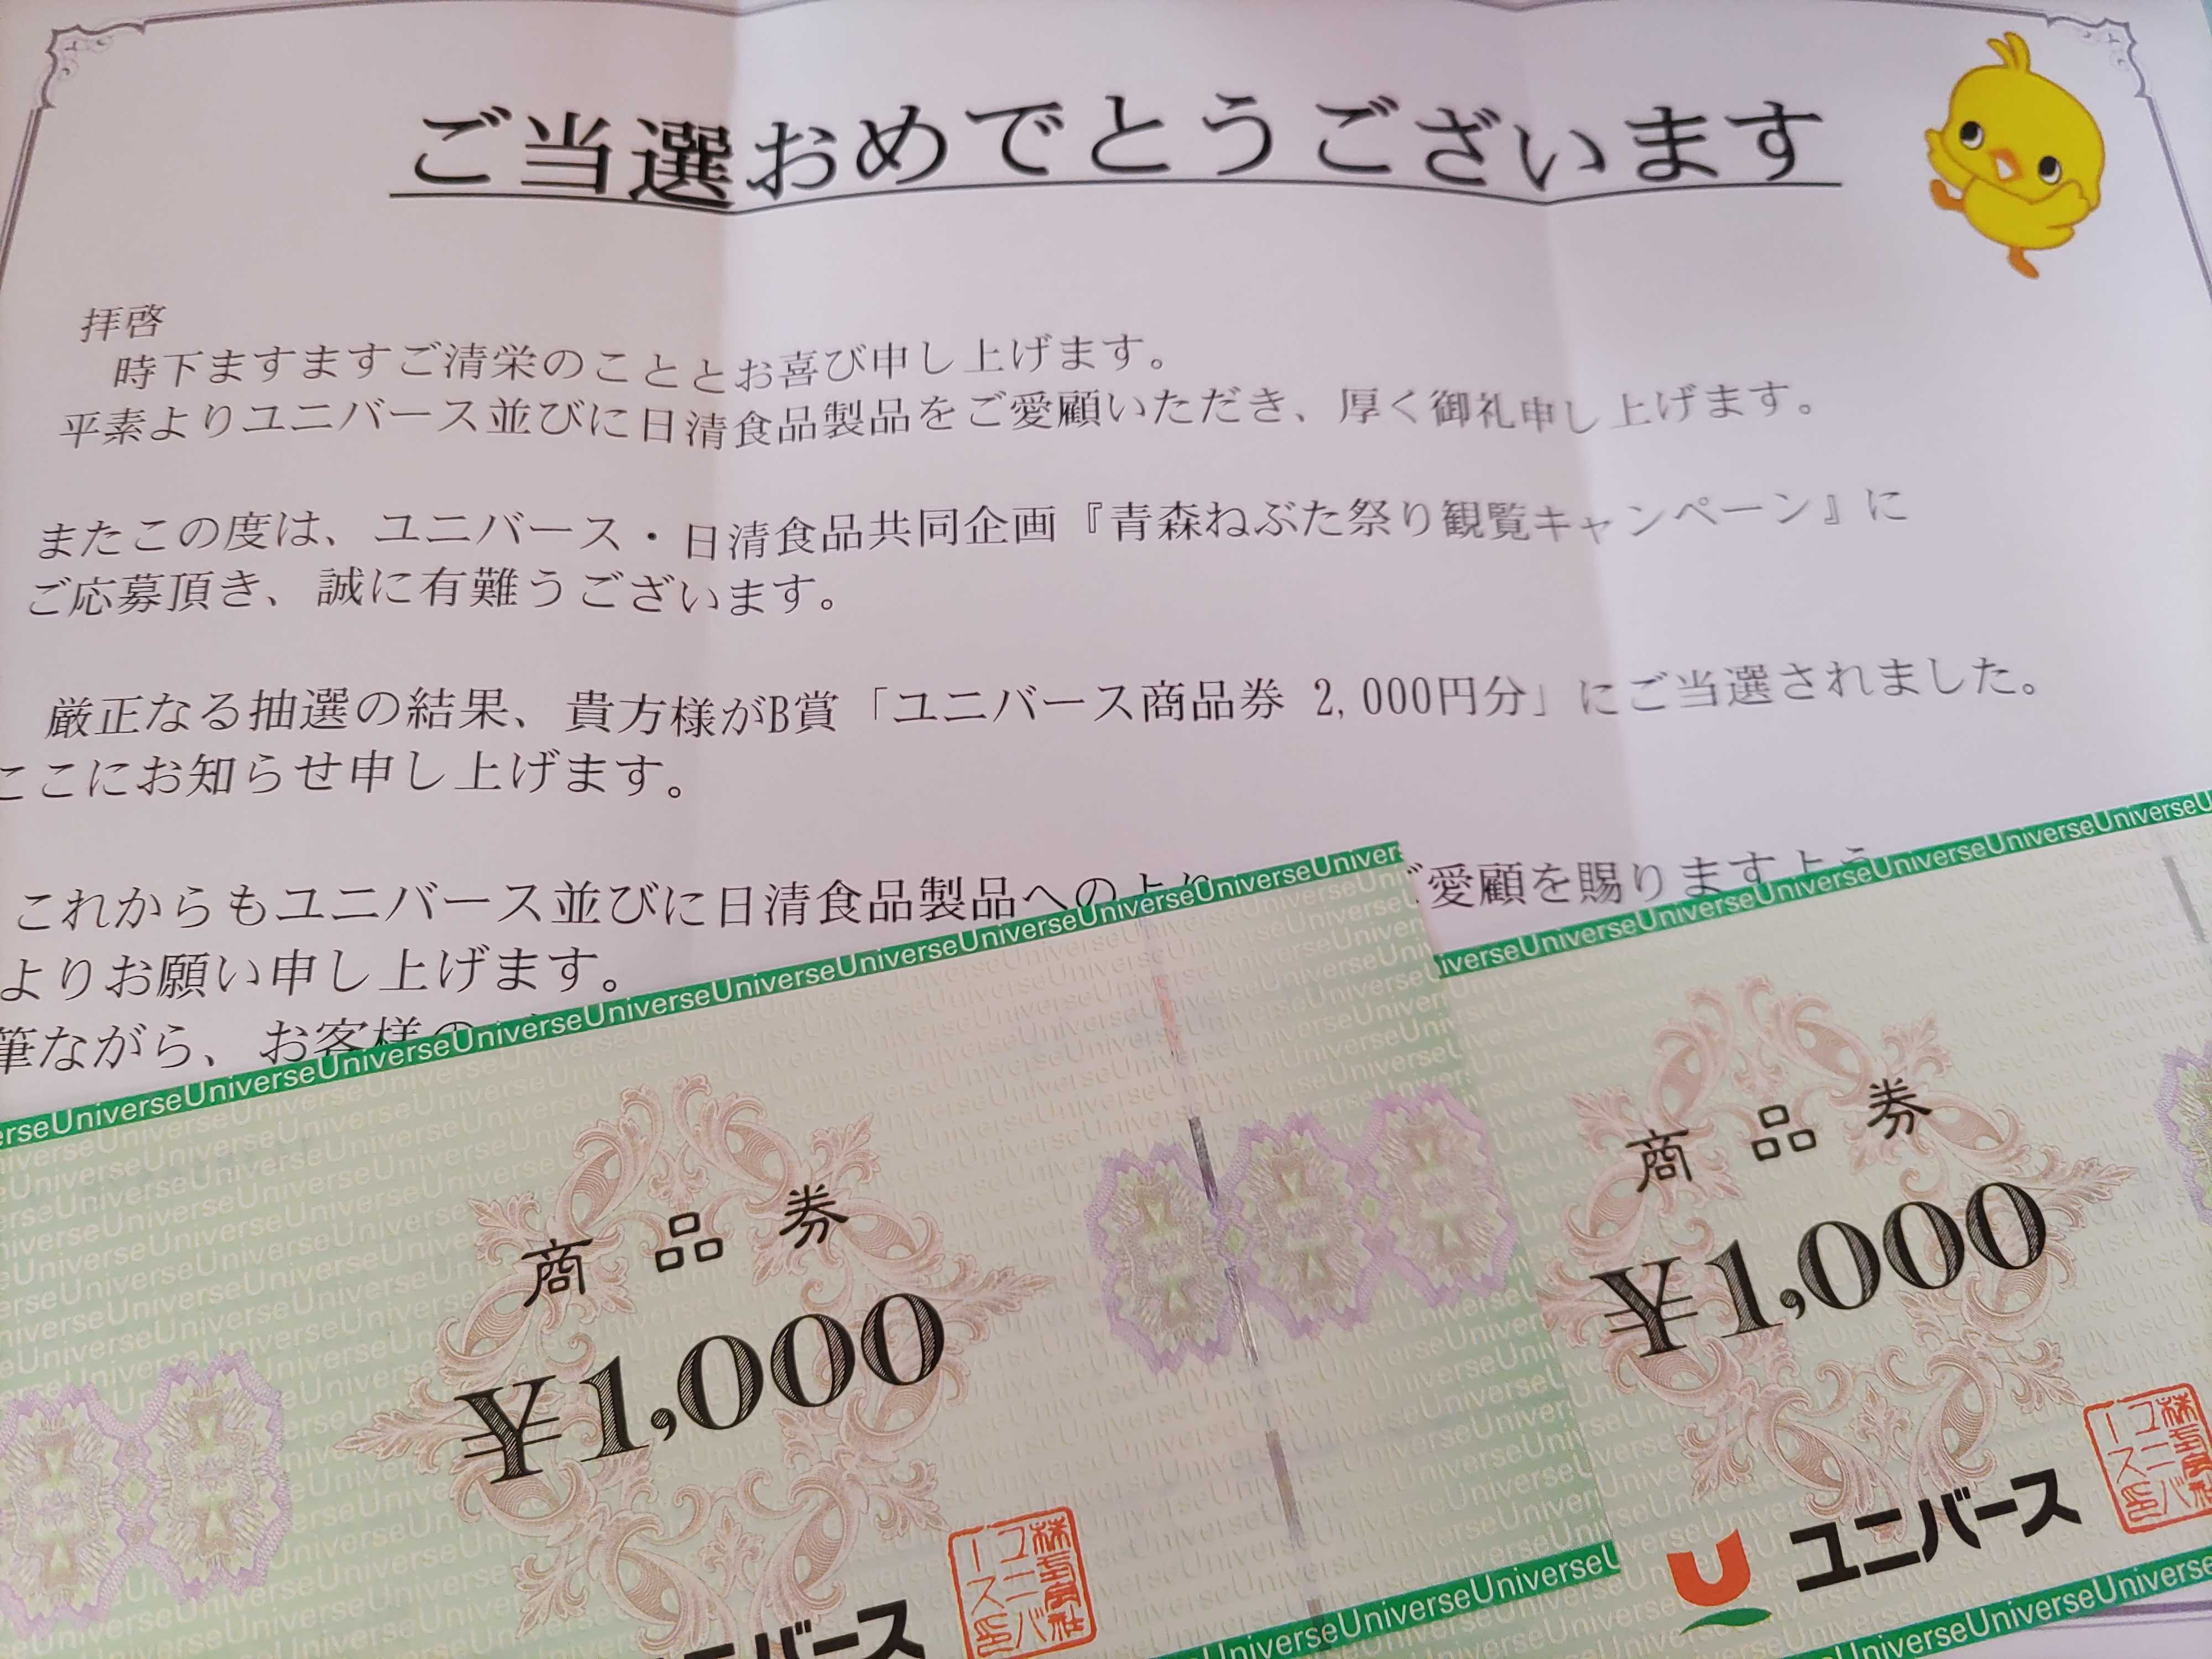 ご当選おめでとうございます
拝啓
時下ますますご清栄のこととお喜び申し上げます。
平素よりユニバース並びに日清食品製品をご愛顧いただき、厚く御礼申し上げます。
またこの度は、ユニバース・日清食品共同企画『青森ねぶた祭り観覧キャンペーン』に
ご応募頂き、誠に有難うございます。
厳正なる抽選の結果、貴方様がB賞「ユニバース商品券 2,000円分」にご当選されました。
ここにお知らせ申し上げます。
これからもユニバース並びに日清食品製品へのより ご愛顧を賜りますよう
よりお願い申し上げます。
筆ながら、お客様の
UniverseUniverseUniverseUniverseUniverseUniverseUniverseUniverseUniverse
商品券
¥1,000
ユニバース
株式会社ユニバース印
UniverseUniverseUniverseUniverse
UniverseUniverseUniverseUniverseUniverseUniverse
商品券
¥1,000
ユニバース
株式会社ユニバース印
UniverseUniverseUniverse